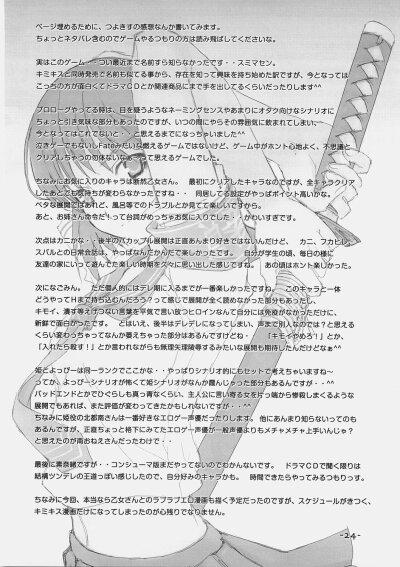 ページ埋めるために、つよきすの感想なんか書いてみます。
ちょっとネタバレ含むのでゲームやるつもりの方は読み飛ばしてくださいな。
実はこのゲーム・・つい最近まで名前すら知らなかったです・・スミマセン。
キミキスと同時発売で名前も似てる事から、存在を知って興味を持ち始めた訳ですが、今となっては
こっちの方が面白くてドラマCDとか関連商品にまで手を出してくるくらいだったりします^^
プロローグやってる時は、目を疑うようなネーミングセンスやあまりにオタク向けなシナリオに
ちょっと引き気味な部分もあったのですが、いつの間にやらその雰囲気に飲まれてしまい、
今となってはこれでないと・・と思えるまでになっちゃいました^^
泣きゲーでもないしFateみたいな燃えるゲームではないけど、ゲーム中がホント心地よく、不思議と
クリアしちゃうの勿体ないなあって思えるゲームでした。
ちなみにお気に入りのキャラは断然乙女さん。　最初にクリアしたキャラなのですが、全キャラクリア
したあとでも気持ちが変わらなかったですね・・　同居してる設定がやっぱポイント高いかな。
ベタな展開ではあれど、風呂等でのトラブルとか見てて楽しいですから。
あと、お姉さん命令だ！って台詞がめっちゃお気に入りでした・・かわいすぎです。
次点はカニかな・・後半のバカップル展開は正直あんまり好きではないんだけど、　カニ、フカヒレ、
スバルとの日常会話は、やっぱなんだかんだで楽しかったです。　自分が学生の頃、毎日の様に
友達の家にいって遊んでた楽しい時期を久々に思い出した感じですね。　あの頃はホント楽しかった。
次になごみん。　ただ個人的にはデレ期に入るまでが一番楽しかったですね。　このキャラと一体
どうやってHまで持ち込むんだろうって感じで展開が全く読めなかった部分もあったし、
キモイ、潰す等えげつない言葉を平気で言い放つヒロインなんて自分には免疫がなかっただけに、
新鮮で面白かったです。　とはいえ、後半はデレデレになってしまい、声まで別人なのでは？と思える
くらい変わっちゃってなんか萎えちゃった部分はあるんですけどね・・　「キモイやめろ！」とか、
「入れたら殺す！」とか言われながらも無理矢理陵辱するみたいな展開も期待したんだけどなぁ^^
姫とよっぴーは同一ランクでここかな・・やっぱりシナリオ的にもセットで考えちゃいますし～
ってか、よっぴーシナリオが怖くて姫シナリオがなんか霞んじゃった部分もあるんですが・・^^
バッドエンドとかでひぐらしも真っ青なくらい、主人公に言い寄る女を片っ端から惨殺しまくるような
展開でもあれば、また評価が変わってきたかもしれないですが・・^^
ちなみに姫役の北都南さんは一番好きなエロゲー声優だったりします。他にあんまり知らないってのも
あるんですが、正直ちょっと格下にみてたエロゲー声優が一般声優よりもメチャメチャ上手いんじゃ？
と思えたのが南おねえさんだったわけで・・
最後に素奈緒ですが・・コンシューマ版まだやってないのでわかんないです。　ドラマCDで聞く限りは
結構ツンデレの王道っぽい感じしたので、自分好みのキャラかも。　時間できたらやってみるつもりっす。
ちなみに今回、本当なら乙女さんとのラブラブエロ漫画も描く予定だったのですが、スケジュールがきつく、
キミキス漫画だけになってしまったのが心残りでなりません。
-24-